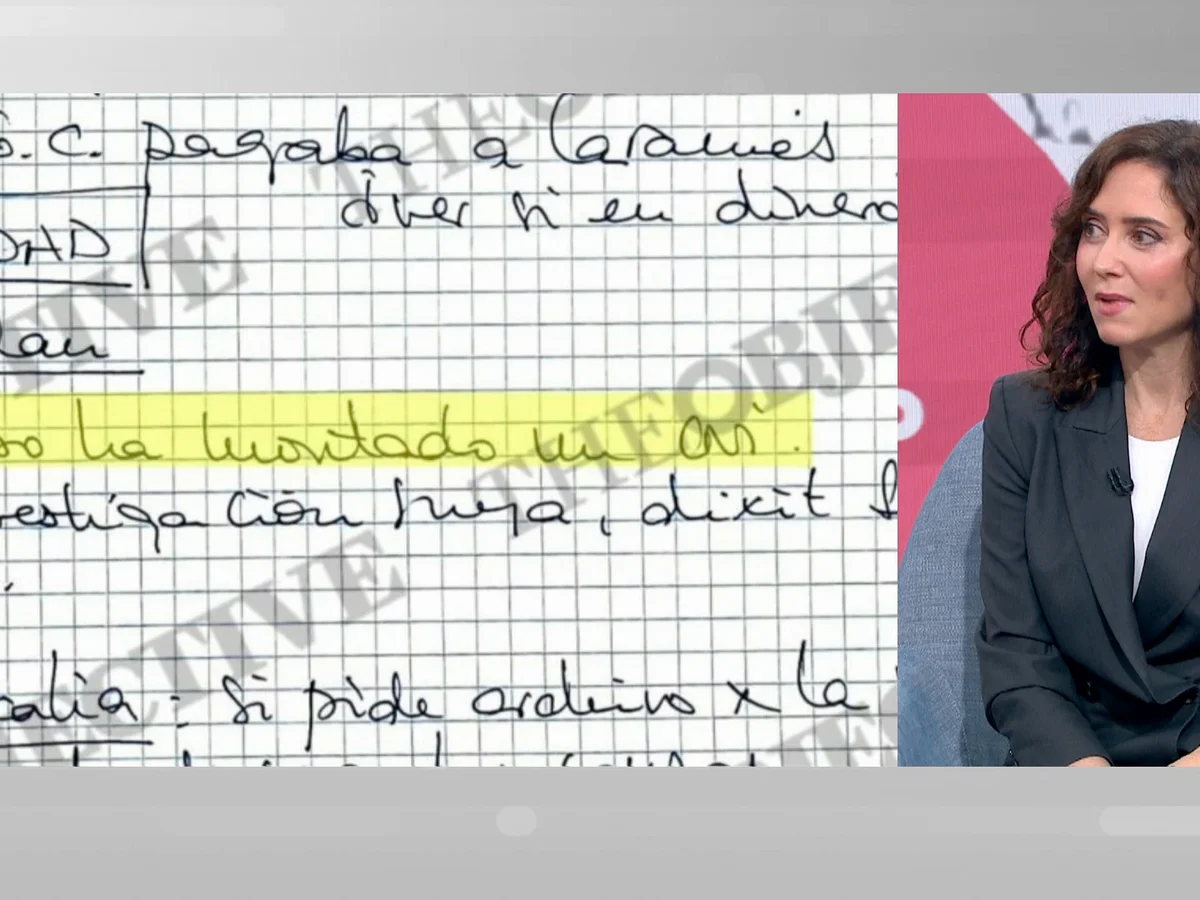 G.C. pagaba a Caramés
a ver si en dinero
DAD
lan
so ha montado un CNI.
estigación suya, dixit
calia: si pide archivo x la
THE OBJECTIVE